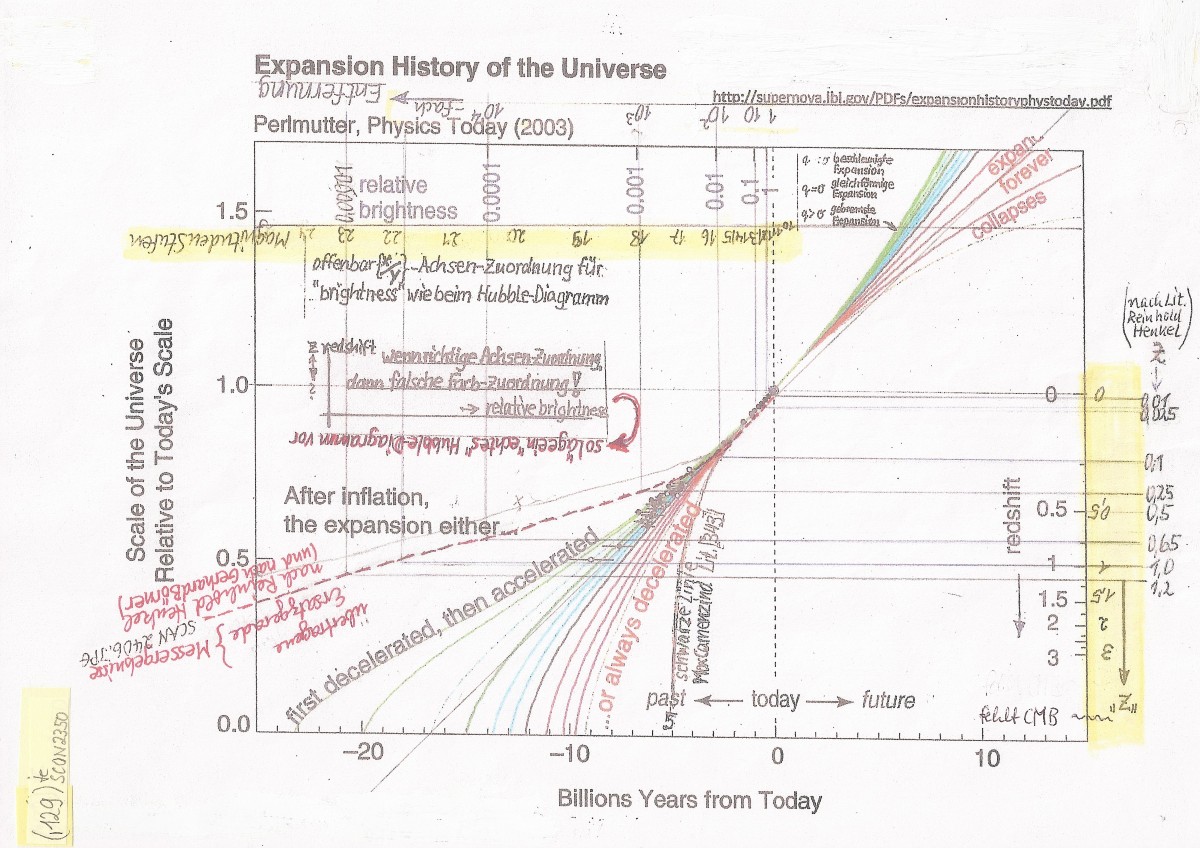 Expansion History of the Universe
Entfernung
-fach
http://supernova.lbl.gov/PDFs/expansionhistoryphystoday.pdf
Perlmutter, Physics Today (2003)
10⁴
10³
10²
10
1
relative
brightness
0.00001
0.0001
0.001
0.01
0.1
1
q<0 beschleunigte
Expansion
q=0 gleichförmige
Expansion
q>0 gebremste
Expansion
expand
forever
collapses
Magnitudenstufen
24 23 22 21 20 19 18 17 16 15 14 13 12 11 10
offenbar
-Achsen-Zuordnung für
"brightness" wie beim Hubble-Diagramm
z redshift
wenn richtige Achsen-Zuordnung,
dann falsche Fach-Zuordnung!
→ relative brightness
so läge ein "echtes" Hubble-Diagramm vor
(nach Lit.
Reinhold
Henkel)
z
Scale of the Universe
Relative to Today's Scale
1.5
1.0
0.5
0.0
After inflation,
the expansion either...
first decelerated, then accelerated
...or always decelerated
schwarze Linie
Max Camenzind Lit. [343]
übertragene
Ersatzgerade } Messergebnisse
nach Reinhold Henkel
(und nach Gerhard Börner)
SCAN 2406.JPG
redshift
0
0.5
1
1.5
2
3
0
0,5
1
1,5
2
3
"z"
0,01
0,025
0,1
0,25
0,5
0,65
1,0
1,2
past ← today → future
fehlt CMB
–20
–10
0
10
Billions Years from Today
(129)
SCAN2350